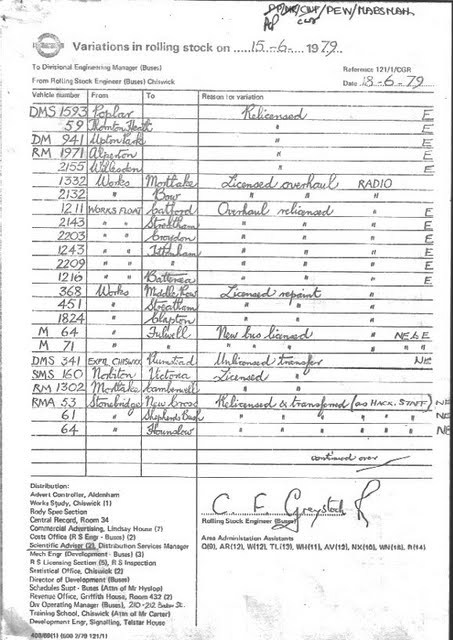 DP/DK/CWF/PEW/MABSMAH
Variations in rolling stock on 15-6- 1979.
To Divisional Engineering Manager (Buses) Reference 121/1/CGR
From Rolling Stock Engineer (Buses) Chiswick Date 18-6-79
Vehicle number From To Reason for variation
DMS 1593 Poplar Relicensed E
59 Thornton Heath " E
DM 941 Upton Park " E
RM 1971 Alperton " E
2155 Willesden " E
1332 Works Mortlake Licensed overhaul RADIO
2132 " Bow " " "
1211 WORKS FLOAT Catford Overhaul relicensed " E
2143 " " Streatham " " " E
2203 " " Croydon " " " E
1243 " " Tottenham " " " E
2209 " " " " " " E
1216 " " Battersea " " " E
368 Works Middle Row Licensed repaint "
451 " Streatham " " "
1824 " Clapton " " "
M 64 " Fulwell New bus licensed " NE&E
M 71 " " " " " " "
DMS 341 EXPTL CHISWICK Plumstead Unlicensed transfer NE
SMS 160 Norbiton Victoria Licensed "
RM 1302 Mortlake Camberwell " "
RMA 53 Stonebridge New Cross Relicensed & transferred (as HACK. STAFF) NE
61 " Shepherds Bush " " " " " NE
64 " Hounslow " " " " " NE
continued over
Distribution:
Advert Controller, Aldenham
Works Study, Chiswick (1)
Body Spec Section
Central Record, Room 34
Commercial Advertising, Lindsay House (7)
Costs Office (R S Engr - Buses) (2)
Scientific Adviser (2), Distribution Services Manager
Mech Engr (Development - Buses) (3)
R S Licensing Section (5), R S Inspection
Statistical Office, Chiswick (2)
Director of Development (Buses)
Schedules Supt - Buses (Attn of Mr Hyslop)
Revenue Office, Griffith House, Room 432 (2)
Div Operating Manager (Buses), 210-212 Baker St.
Training School, Chiswick (Attn of Mr Carter)
Development Engr, Signalling, Telstar House
C F Greystock
Rolling Stock Engineer (Buses)
Area Administation Assistants
Q(9), AR(12), W(12), TL(13), WH(11), AV(12), NX(10), WN(18), R(14)
400/89(1) (500 2/79 121/1)